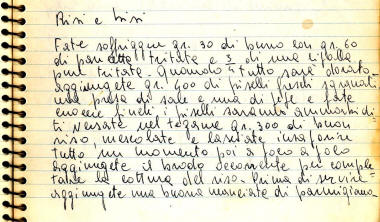 Risi e bisi
Fate soffriggere gr. 30 di burro con gr. 60
di pancetta tritata e 3 di una cipolla
pure tritata. Quando tutto sarà dorato
aggiungete gr. 400 di piselli freschi sgranati
una presa di sale e una di pepe e fate
cuocere finchè i piselli saranno ammorbidi
ti. Versate nel tegame gr. 300 di buon
riso, mescolate e lasciate insaporire
tutto un momento poi a poco a poco
aggiungete il brodo occorrente per comple
tare la cottura del riso. Prima di servire
aggiungete una buona manciata di parmigiano.